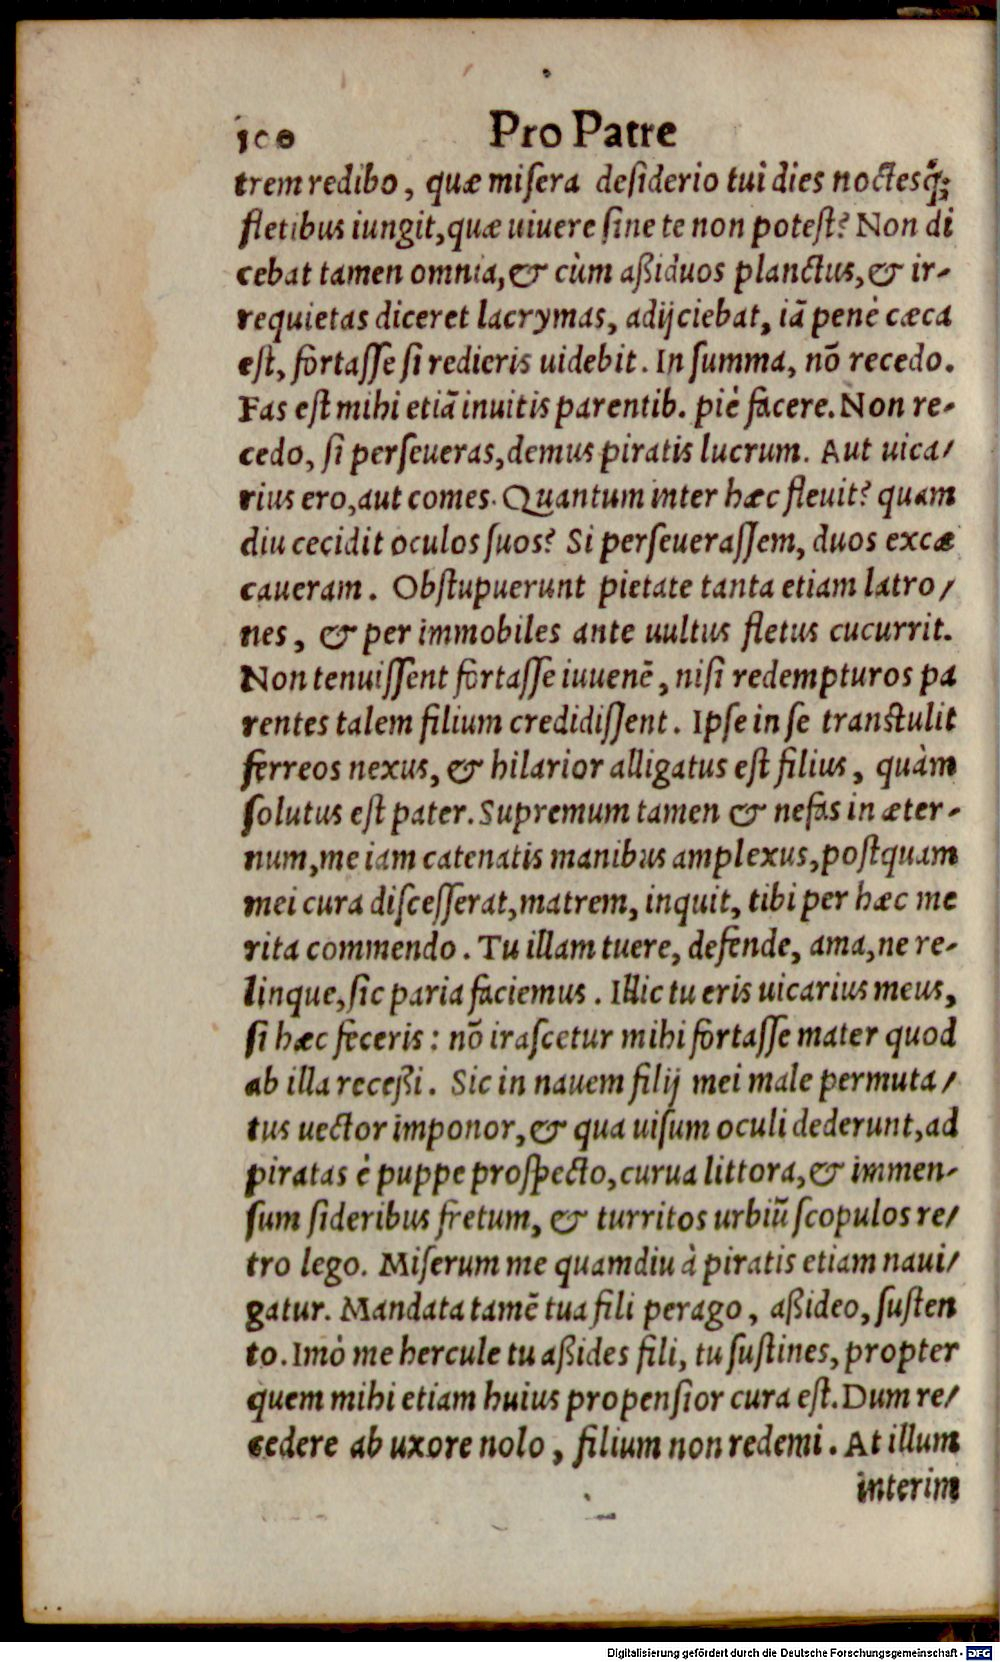 100 Pro Patre
trem redibo, quæ miſera deſiderio tui dies noctesq́;
fletibus iungit, quæ uiuere ſine te non poteſt? Non di
cebat tamen omnia, & cùm aßiduos planctus, & ir-
requietas diceret lacrymas, adijciebat, iā penè cæca
eſt, fortaſſe ſi redieris uidebit. In ſumma, nō recedo.
Fas eſt mihi etiā inuitis parentib. piè facere. Non re-
cedo, ſi perſeueras, demus piratis lucrum. Aut uica/
rius ero, aut comes. Quantum inter hæc fleuit? quam
diu cecidit oculos ſuos? Si perſeueraſſem, duos excæ
caueram. Obſtupuerunt pietate tanta etiam latro/
nes, & per immobiles ante uultus fletus cucurrit.
Non tenuiſſent fortaſſe iuuenē, niſi redempturos pa
rentes talem filium credidiſſent. Ipſe in ſe tranſtulit
ferreos nexus, & hilarior alligatus eſt filius, quàm
ſolutus eſt pater. Supremum tamen & nefas in æter-
num, me iam catenatis manibus amplexus, poſtquam
mei cura diſceſſerat, matrem, inquit, tibi per hæc me
rita commendo. Tu illam tuere, defende, ama, ne re-
linque, ſic paria faciemus. Illic tu eris uicarius meus,
ſi hæc feceris: nō iraſcetur mihi fortaſſe mater quod
ab illa receßi. Sic in nauem filij mei male permuta/
tus uector imponor, & qua uiſum oculi dederunt, ad
piratas è puppe proſpecto, curua littora, & immen-
ſum ſideribus fretum, & turritos urbiū ſcopulos re/
tro lego. Miſerum me quamdiu à piratis etiam naui/
gatur. Mandata tamē tua fili perago, aßideo, ſuſten
to. Imò me hercule tu aßides fili, tu ſuſtines, propter
quem mihi etiam huius propenſior cura eſt. Dum re/
cedere ab uxore nolo, filium non redemi. At illum
interim
Digitalisierung gefördert durch die Deutsche Forschungsgemeinschaft - DFG